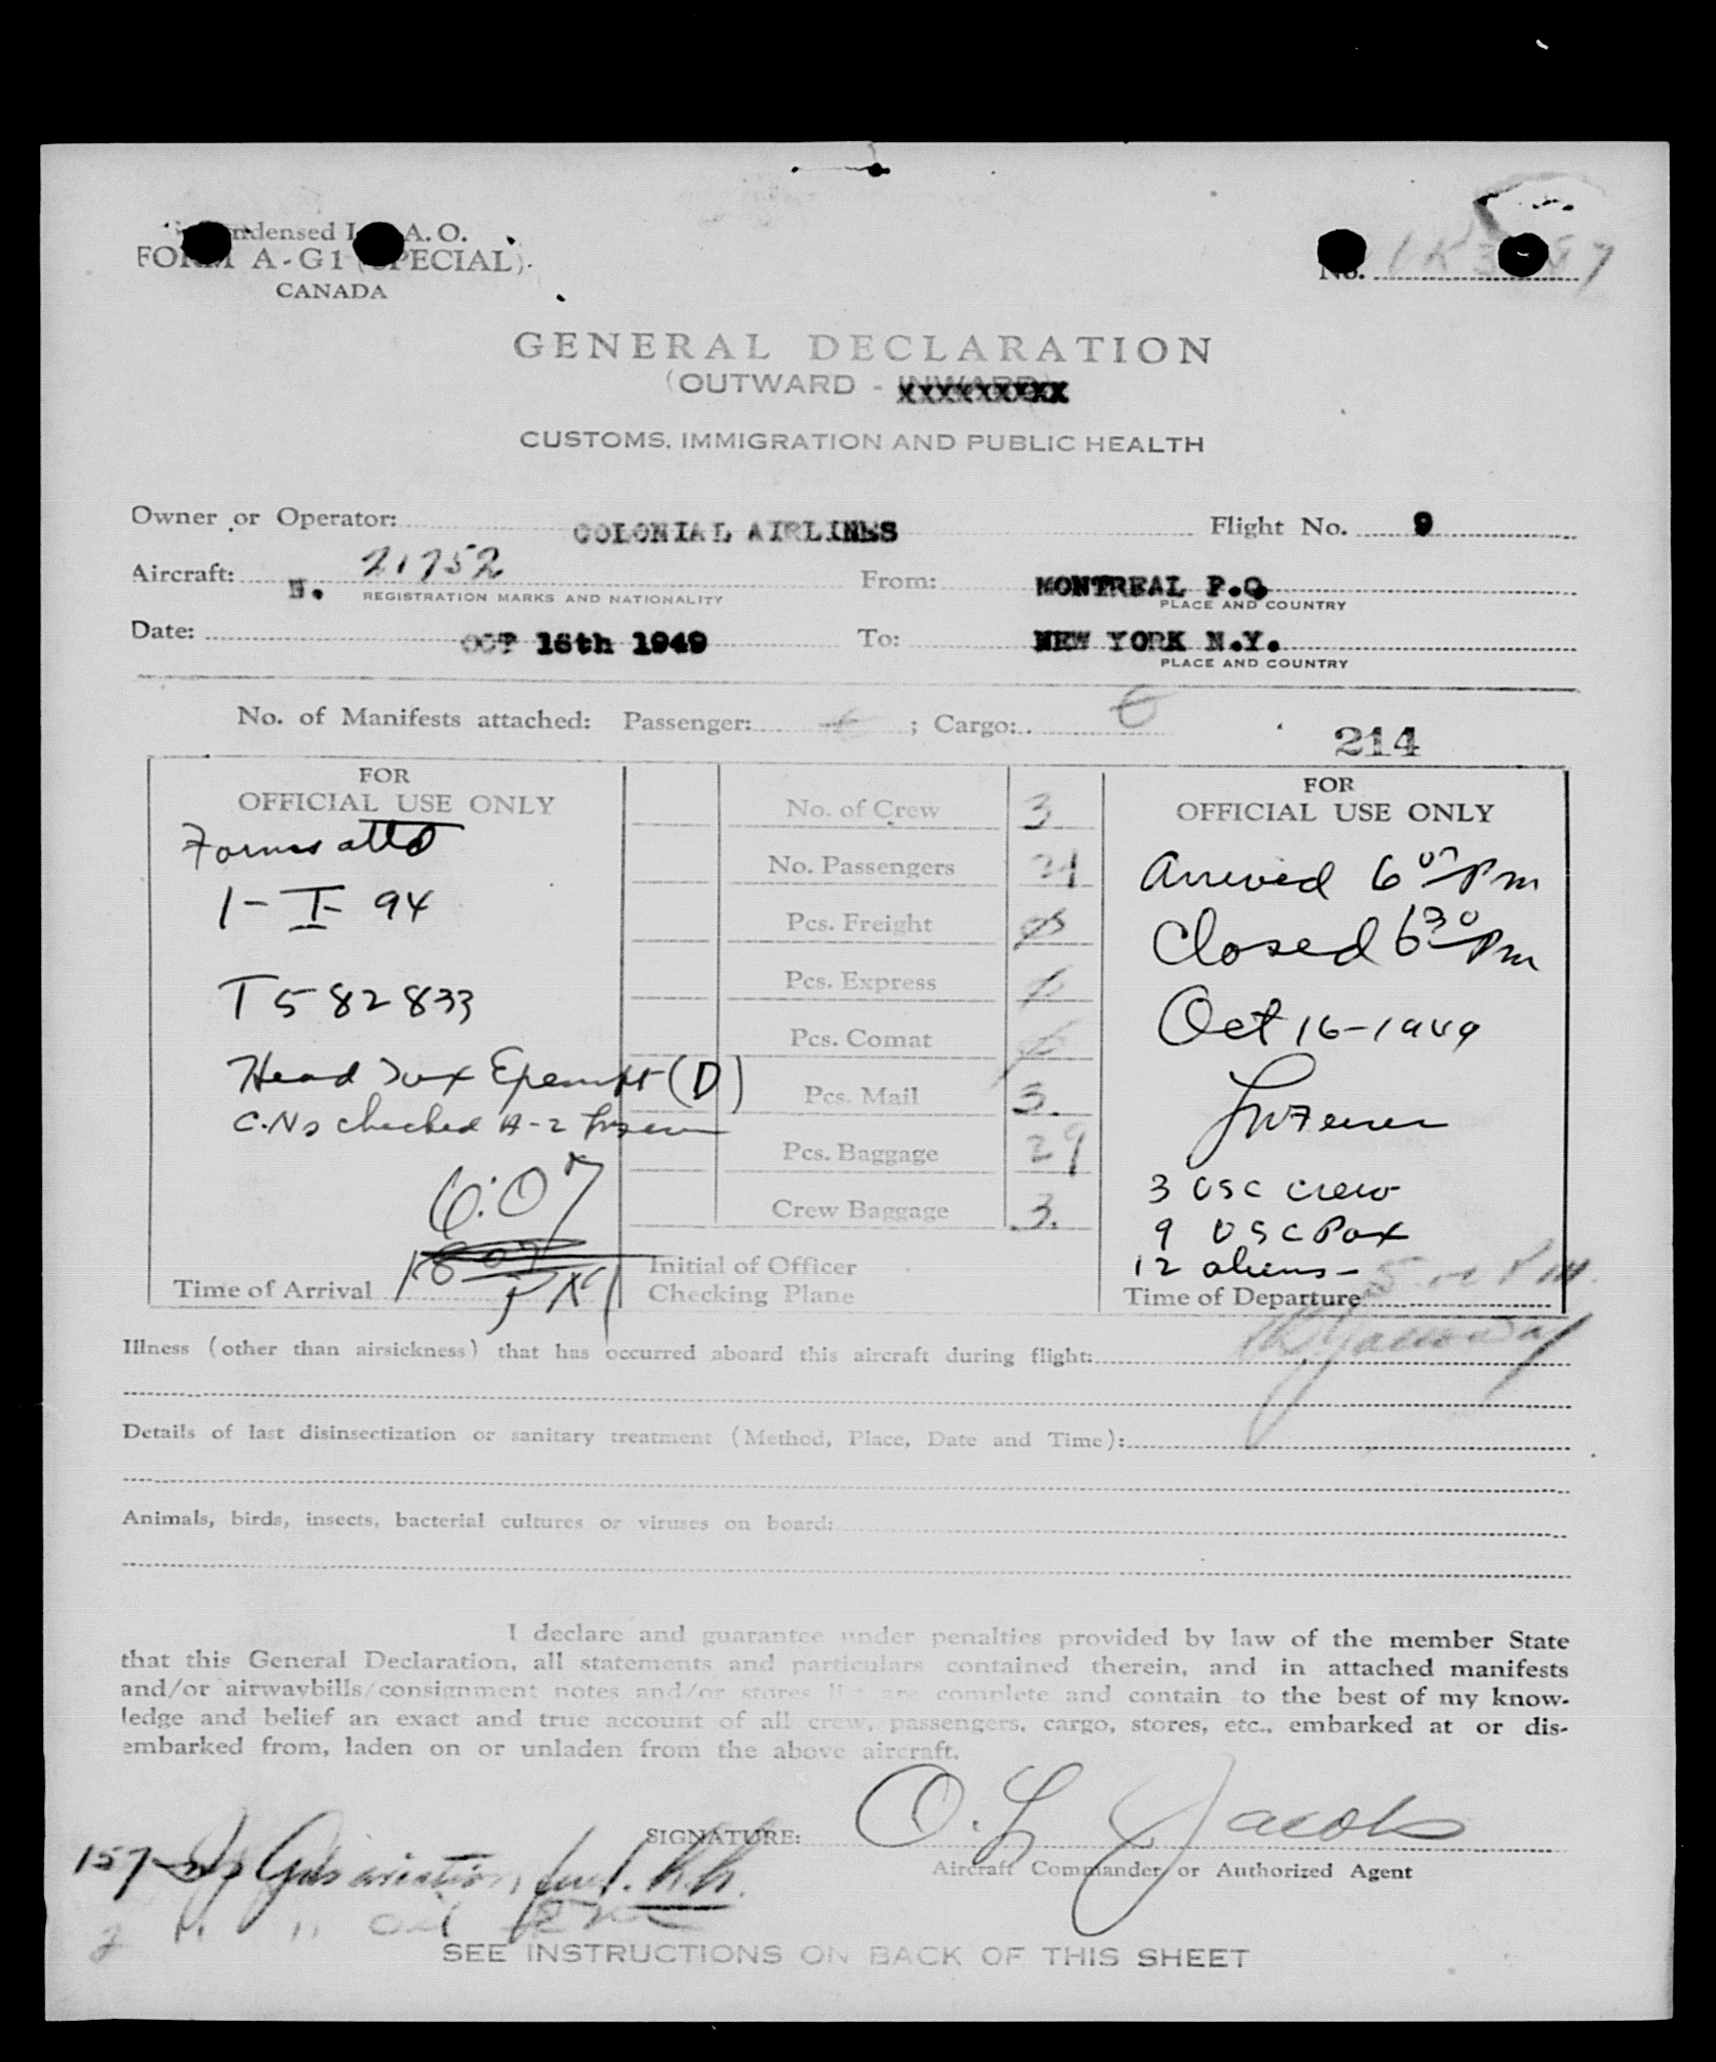 Condensed I. A. O.
FORM A-G1 (SPECIAL).
CANADA
No.
GENERAL DECLARATION
(OUTWARD - INWARD)
CUSTOMS, IMMIGRATION AND PUBLIC HEALTH
Owner or Operator: COLONIAL AIRLINES Flight No. 9
Aircraft: N. 21752 From: MONTREAL P.Q
REGISTRATION MARKS AND NATIONALITY PLACE AND COUNTRY
Date: OCT 16th 1949 To: NEW YORK N.Y.
PLACE AND COUNTRY
No. of Manifests attached: Passenger: ; Cargo:
214
FOR
OFFICIAL USE ONLY
Forms attd
1-I-94
T582833
Head Tax Exempt (D)
C.Ns checked A-2
6:07
1807
Time of Arrival
No. of Crew 3
No. Passengers 21
Pcs. Freight
Pcs. Express
Pcs. Comat
Pcs. Mail 3.
Pcs. Baggage 29
Crew Baggage 3.
Initial of Officer
Checking Plane
FOR
OFFICIAL USE ONLY
Arrived 6 07 Pm
Closed 6 30 Pm
Oct 16-1949
3 USC crew
9 USC Pax
12 aliens-
Time of Departure
Illness (other than airsickness) that has occurred aboard this aircraft during flight:
Details of last disinsectization or sanitary treatment (Method, Place, Date and Time):
Animals, birds, insects, bacterial cultures or viruses on board:
I declare and guarantee under penalties provided by law of the member State
that this General Declaration, all statements and particulars contained therein, and in attached manifests
and/or airwaybills/consignment notes and/or stores list are complete and contain to the best of my know-
ledge and belief an exact and true account of all crew, passengers, cargo, stores, etc., embarked at or dis-
embarked from, laden on or unladen from the above aircraft.
SIGNATURE: O. L. Jacobs
Aircraft Commander or Authorized Agent
157 Gals aviation fuel.
SEE INSTRUCTIONS ON BACK OF THIS SHEET